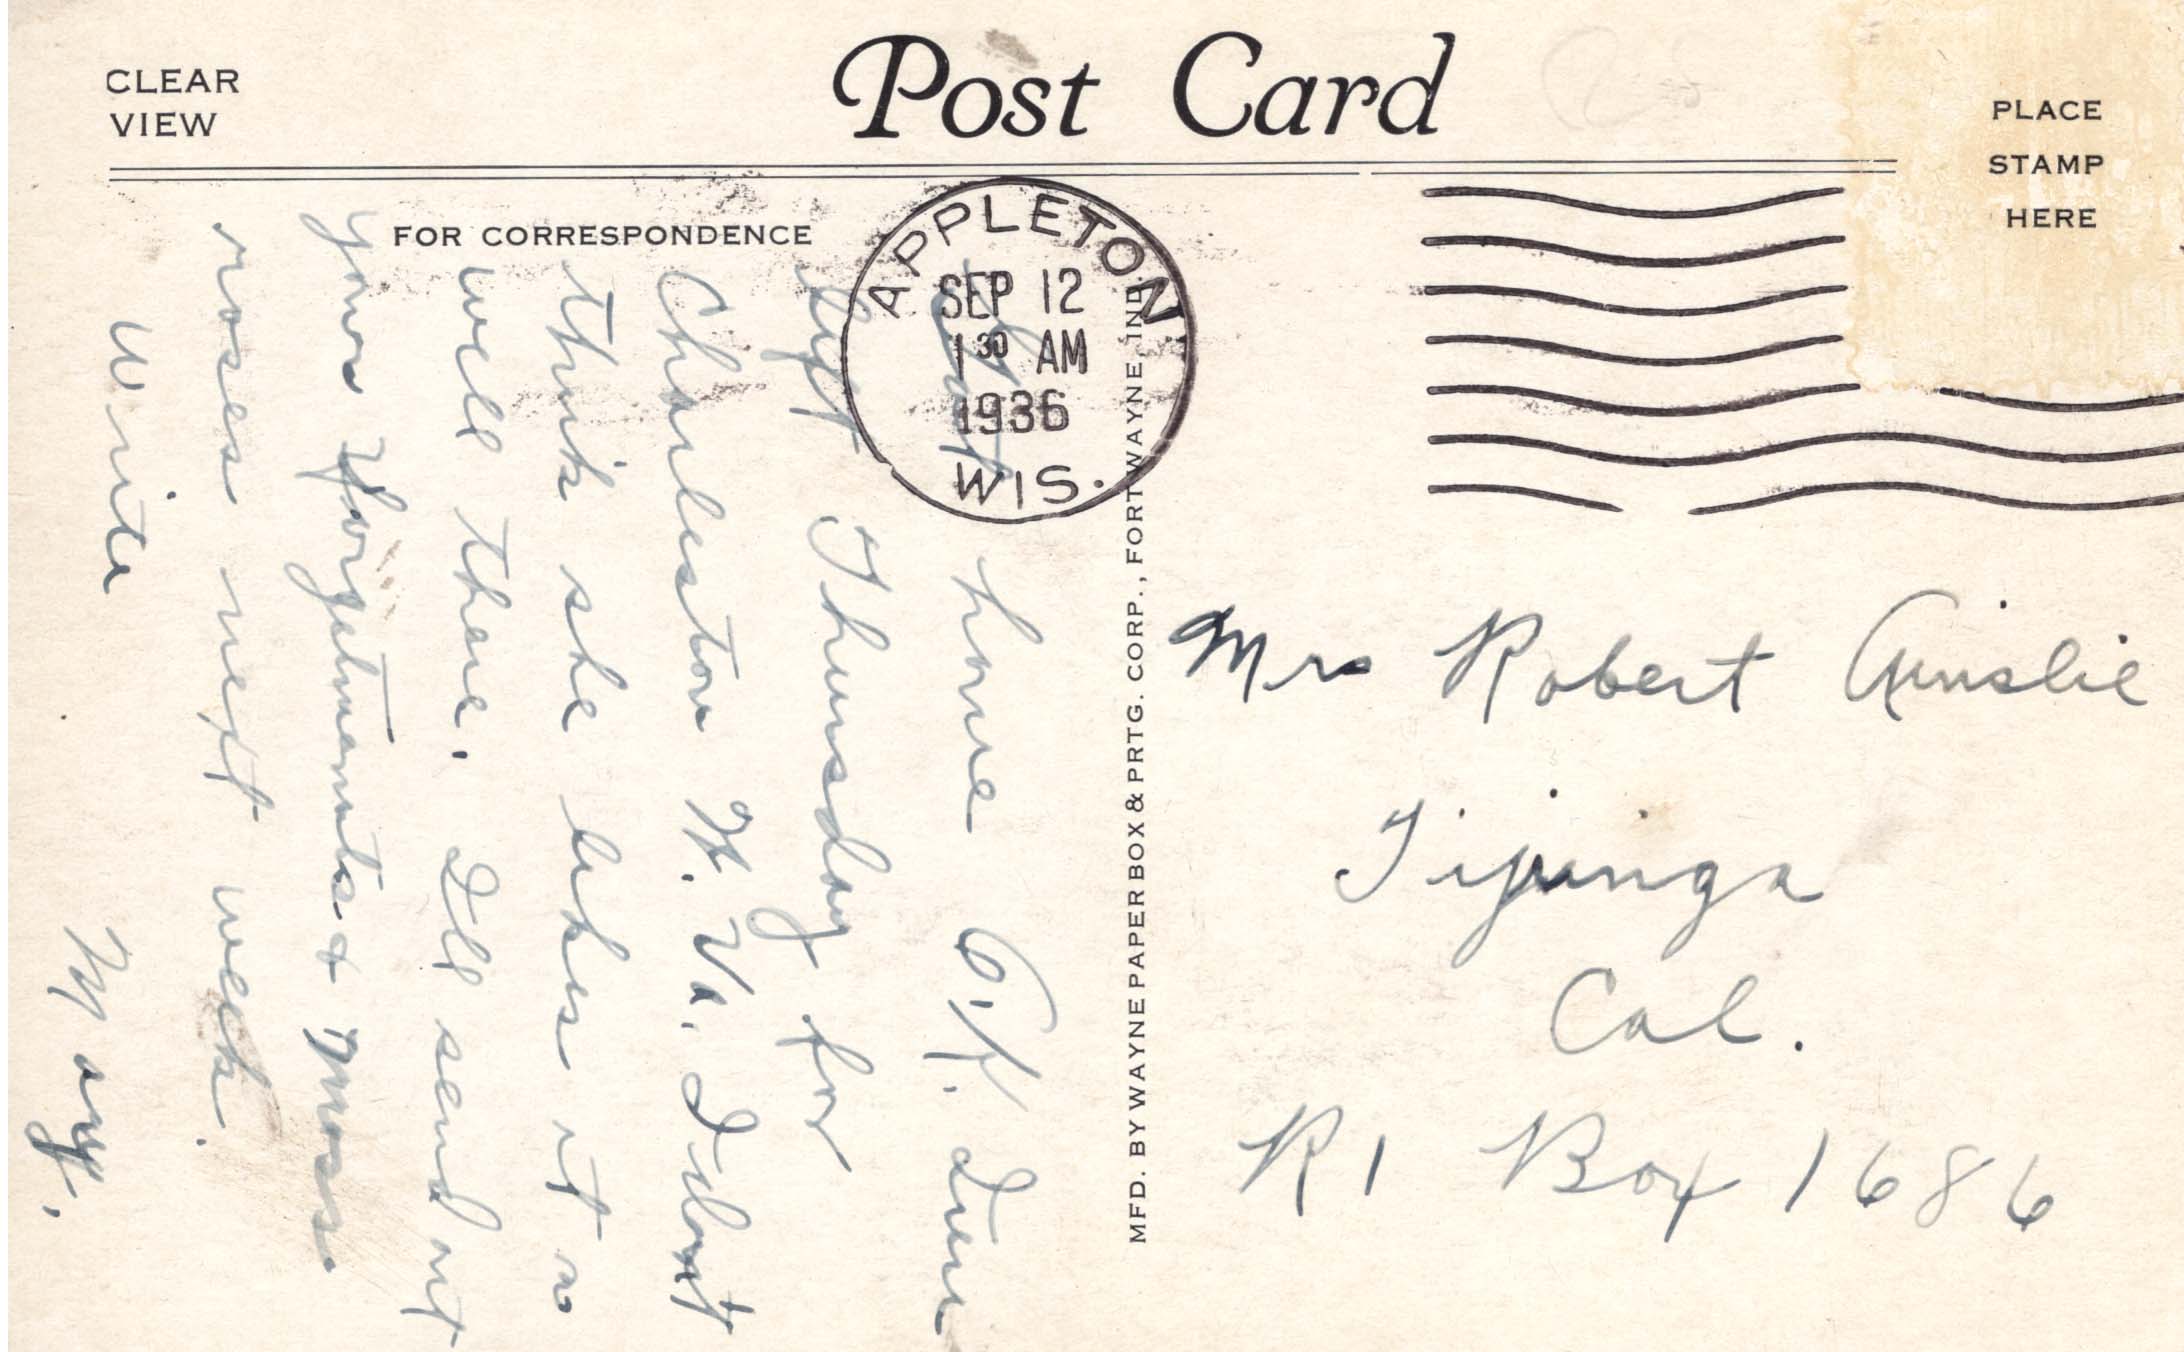 CLEAR
VIEW
Post Card
PLACE
STAMP
HERE
FOR CORRESPONDENCE
APPLETON
SEP 12
1 30 AM
1936
WIS.
Got home O.K.
left Thursday for
Charleston W. Va. I don't
think she likes it a
well there. I'll send out
your forgetmenots & moss
roses next week.
Write
Mary.
MFD. BY WAYNE PAPER BOX & PRTG. CORP., FORT WAYNE, IND.
Mrs Robert Ainslie
Tijunga
Cal.
R 1 Box 1686